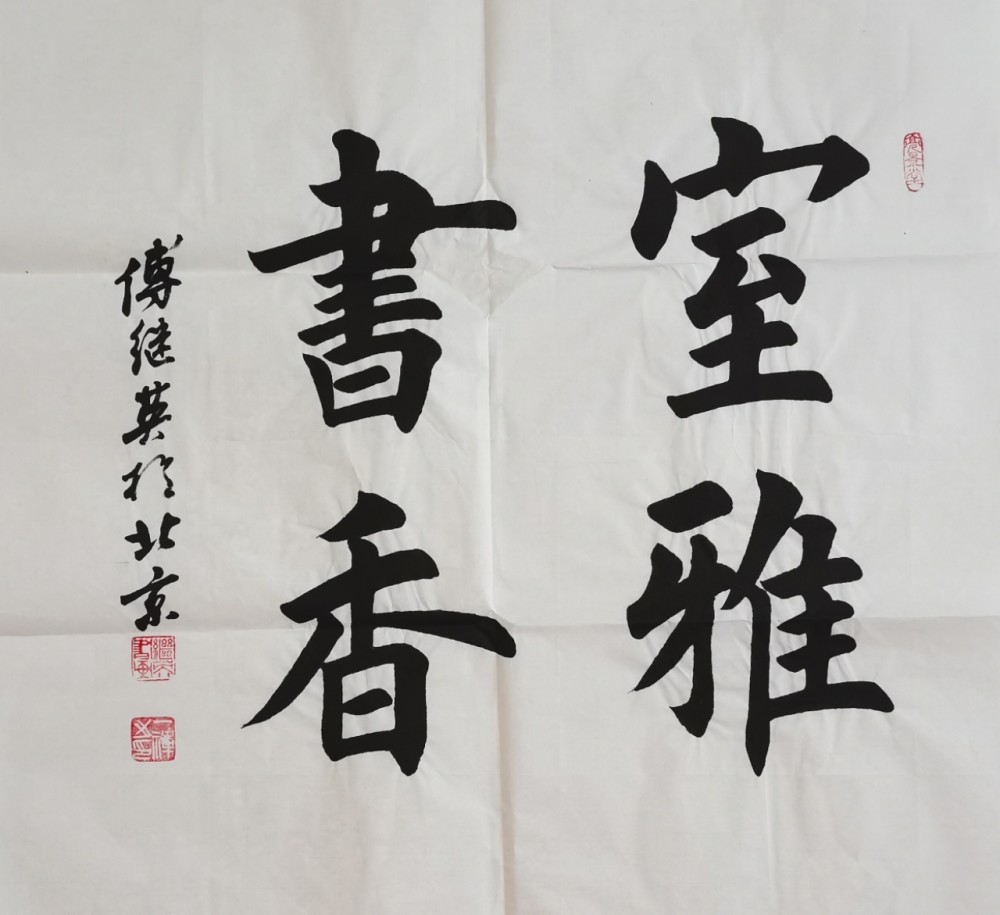 室雅
書香
傅继英於北京